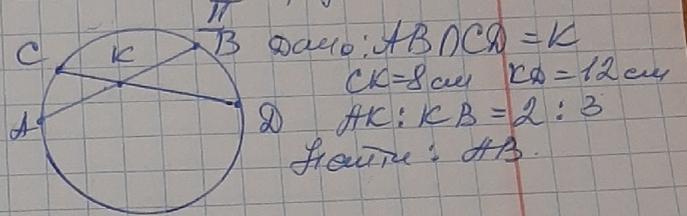 П
C K B Дано: AB ∩ CD = K
CK = 8 см KD = 12 см
A D AK : KB = 2 : 3
Найти: AB.